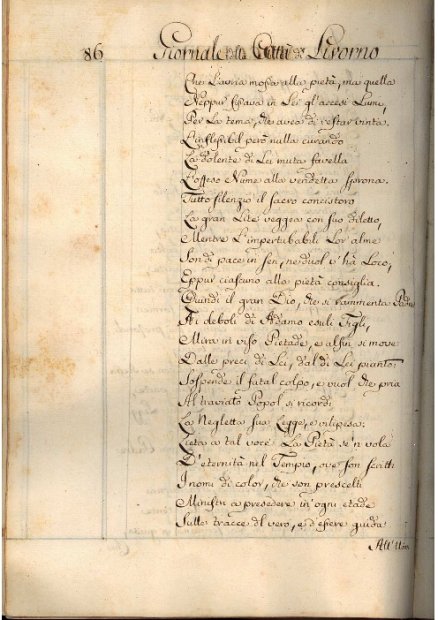 86 Giornale della Città di Livorno
l'avria mossa alla pietà, ma quella
Neppur fissava in Lei gl'accesi Lumi,
Per La tema, che avea di restar vinta.
L'inflessibil però nulla curando
La dolente di Lei muta favella
L'offeso Nume alla vendetta sprona.
Tutto silenzio il sacro concistoro
La gran Lite veggea con suo diletto,
Mentre L'imperturbabili Lor'alme
Son di pace in sen, ne duol v'hà Loco,
Eppur ciascuno alla pietà consiglia.
Quindi il gran Dio, che si rammenta Padre
Ai deboli di Adamo esuli Figli,
Mira in viso Pietade, e alfin si move
Dalle preci di Lei, dal di Lei pianto:
Sospende il fatal colpo, e vuol che pria
Al traviato Popol si ricordi
La Negletta sua Legge, e vilipesa.
Lieta a tal voce La Pietà se'n vola
D'eternità nel Tempio, ove son scritti
I nomi di color, che son prescelti
Ministri a presedere in ogni etade
Sulle tracce del vero, e d'essere guida